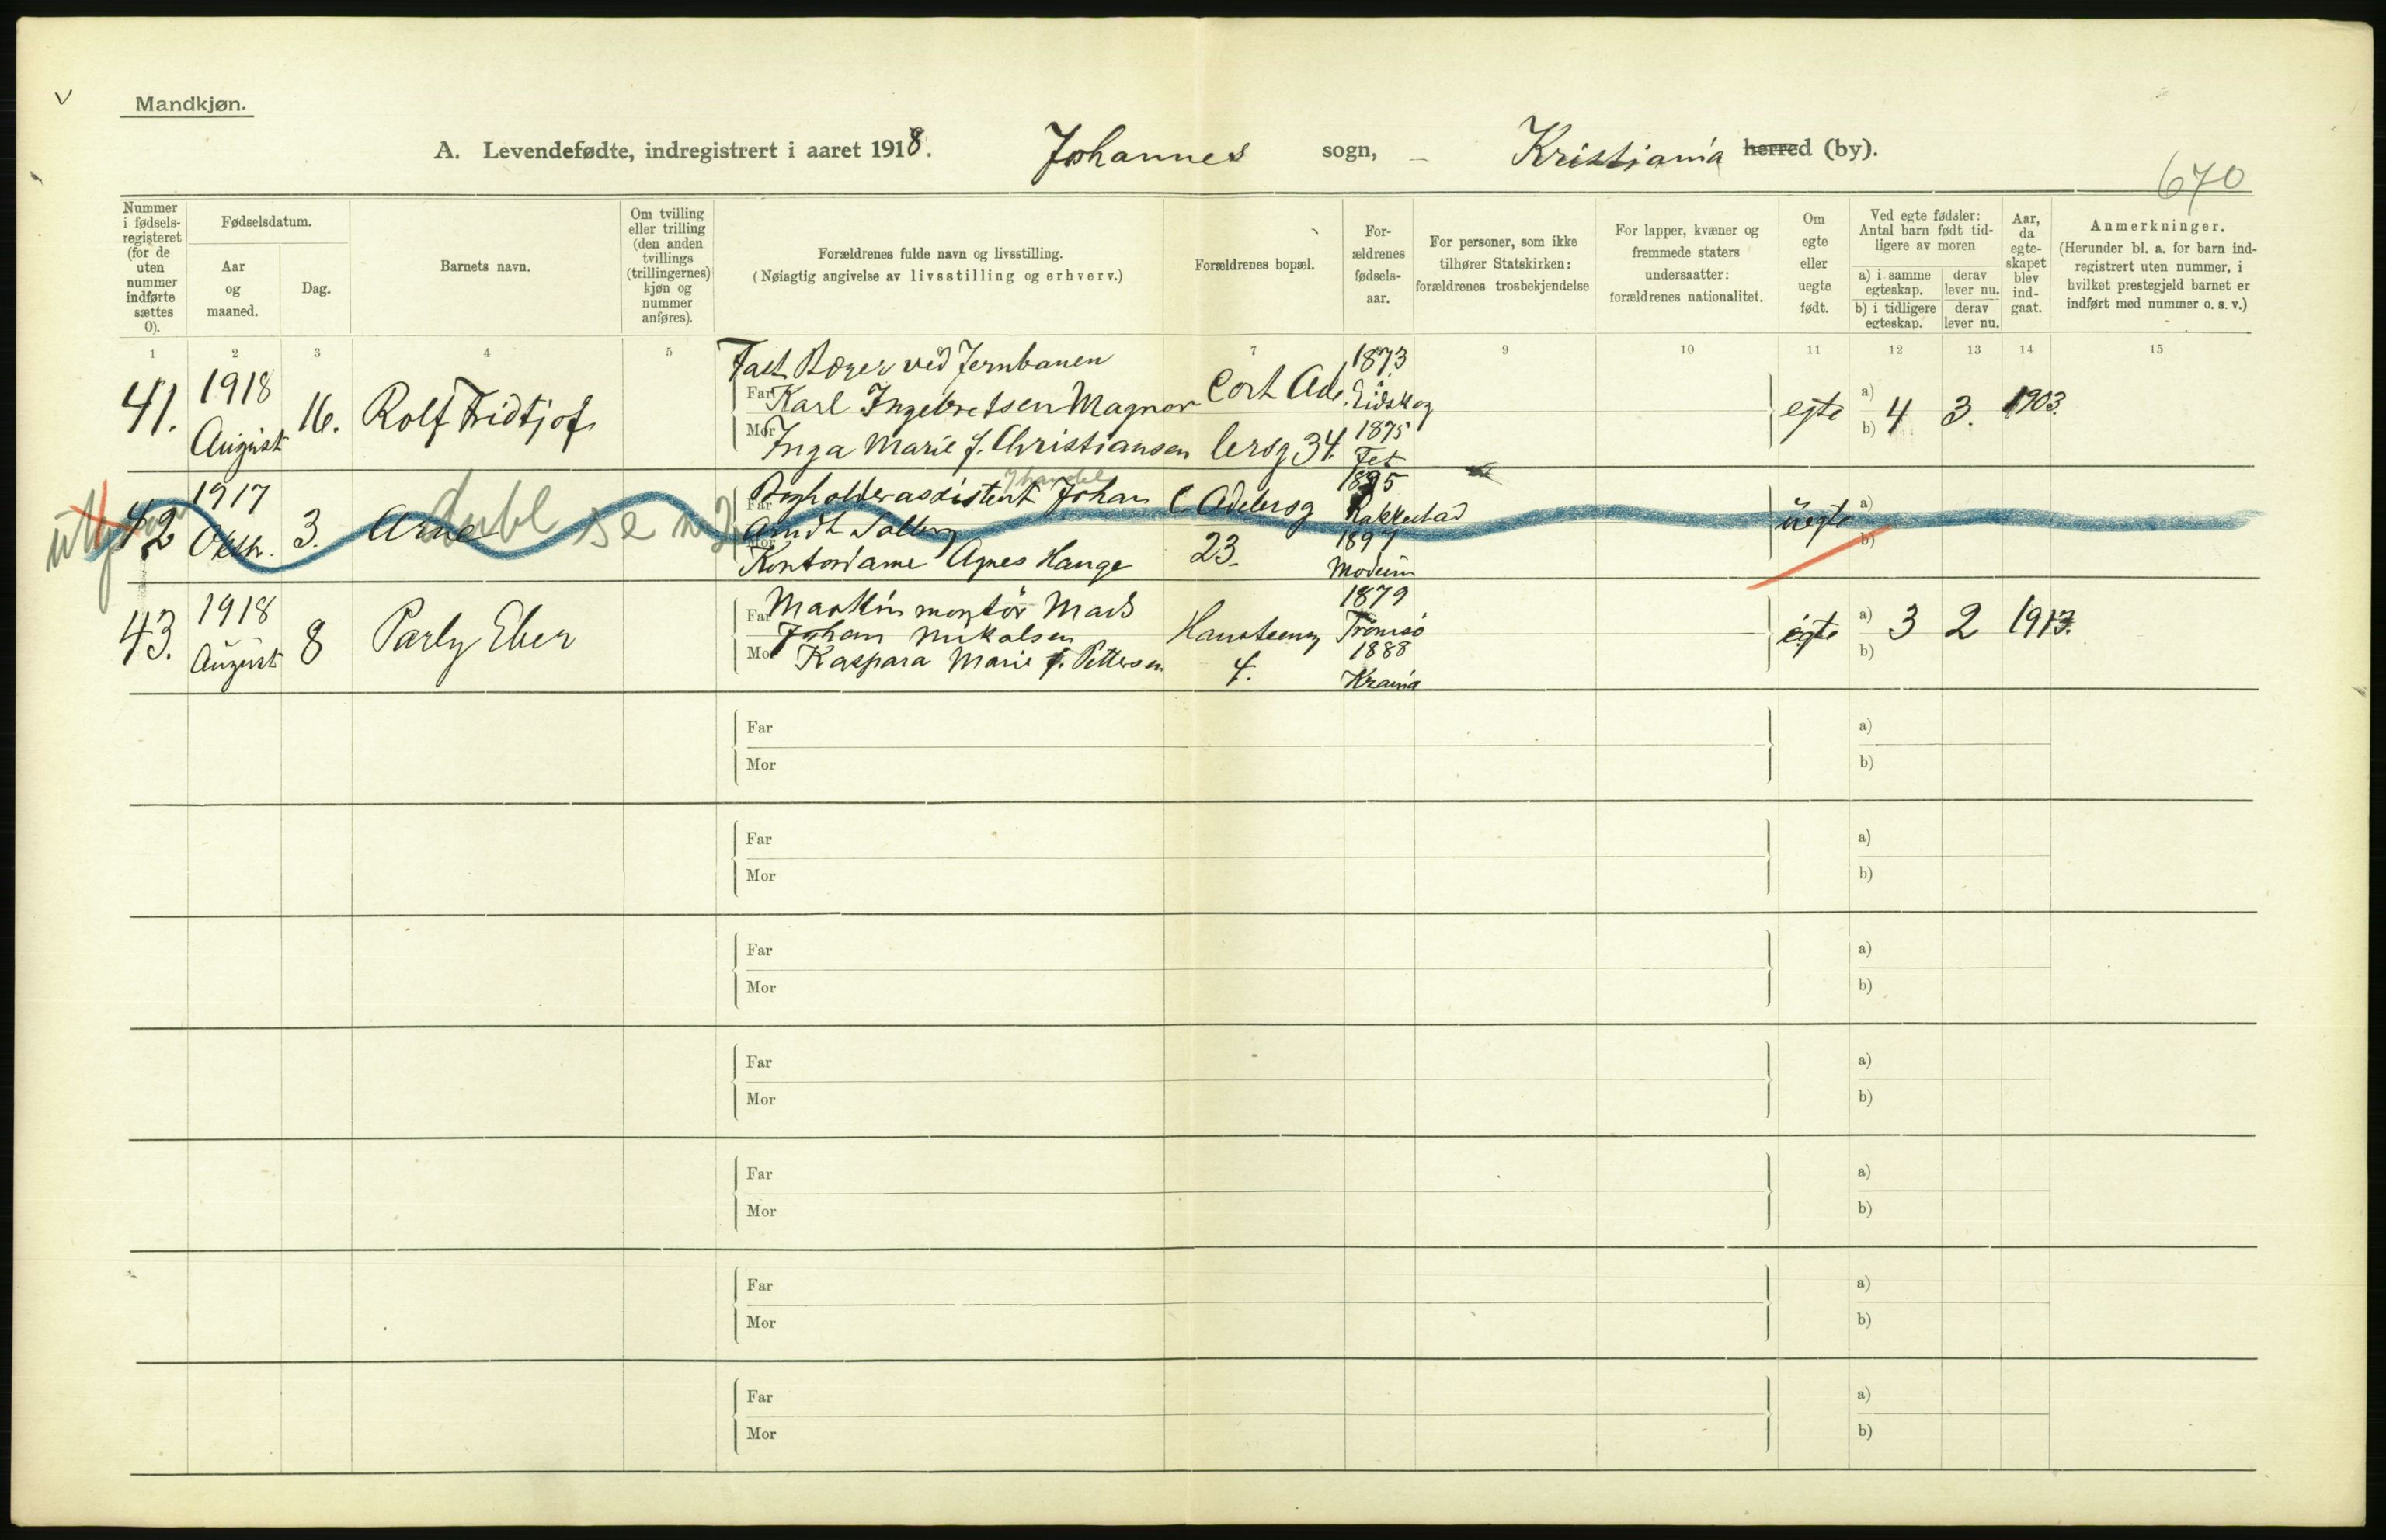 Mandkjøn.
A. Levendefødte, indregistrert i aaret 1918. Johannes sogn, Kristiania herred (by).
670
Nummer i fødsels-registeret (for de uten nummer indførte sættes 0).
Fødselsdatum.
Aar og maaned.
Dag.
Barnets navn.
Om tvilling eller trilling (den anden tvillings (trillingernes) kjøn og nummer anføres).
Forældrenes fulde navn og livsstilling.
(Nøiagtig angivelse av livsstilling og erhverv.)
Forældrenes bopæl.
For-ældrenes fødsels-aar.
For personer, som ikke tilhører Statskirken: forældrenes trosbekjendelse
For lapper, kvæner og fremmede staters undersaatter: forældrenes nationalitet.
Om egte eller uegte født.
Ved egte fødsler: Antal barn født tid-ligere av moren
a) i samme egteskap.
derav lever nu.
b) i tidligere egteskap.
derav lever nu.
Aar, da egte-skapet blev ind-gaat.
Anmerkninger.
(Herunder bl. a. for barn ind-registrert uten nummer, i hvilket prestegjeld barnet er indført med nummer o. s. v.)
1 2 3 4 5 7 9 10 11 12 13 14 15
41. 1918 August 16. Rolf Fridtjof
Fast Bører ved Jernbanen
Far Karl Ingebretsen Magnor
Mor Inga Marie f. Christiansen
Cort Adelersg 34.
1873 Eidskog
1875 Fet
egte a) b) 4 3. 1903.
42 1917 Oktbr. 3. Arne
dubl se n
Bogholderassistent Johan
handel
Far Arndt Solberg
Mor Kontordame Agnes Hauge
C Adelersg 23.
1895 Rakkestad
1897 Modum
uegte a) b)
43. 1918 August 8 Parly Eber
Far Maskinmontør Mads
Johan Mikalsen
Mor Kaspara Marie f. Pettersen
Hansteensg 4.
1879 Tromsø
1888 Krania
egte a) b) 3 2 1913.
Far a)
Mor b)
Far a)
Mor b)
Far a)
Mor b)
Far a)
Mor b)
Far a)
Mor b)
Far a)
Mor b)
Far a)
Mor b)